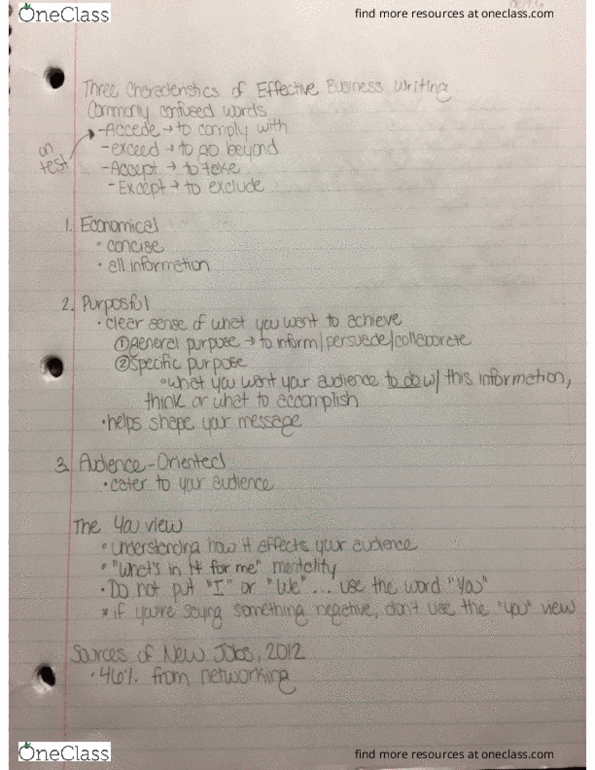 OneClass
find more resources at oneclass.com
Three Characteristics of Effective Business Writing
Commonly confused words
-Accede → to comply with
-exceed → to go beyond
on test
-Accept → to take
-Except → to exclude
1. Economical
• concise
• all information
2. Purposful
• clear sense of what you want to achieve
① general purpose → to inform/persuade/collaborate
② Specific purpose
• what you want your audience to do w/ this information,
think or what to accomplish
• helps shape your message
3. Audience-Oriented
• cater to your audience
The You view
• understanding how it affects your audience
• "What's in it for me" mentality
• Do not put "I" or "We"... use the word "You"
* if you're saying something negative, don't use the "you" view
Sources of New Jobs, 2012
• 46% from networking
OneClass
find more resources at oneclass.com